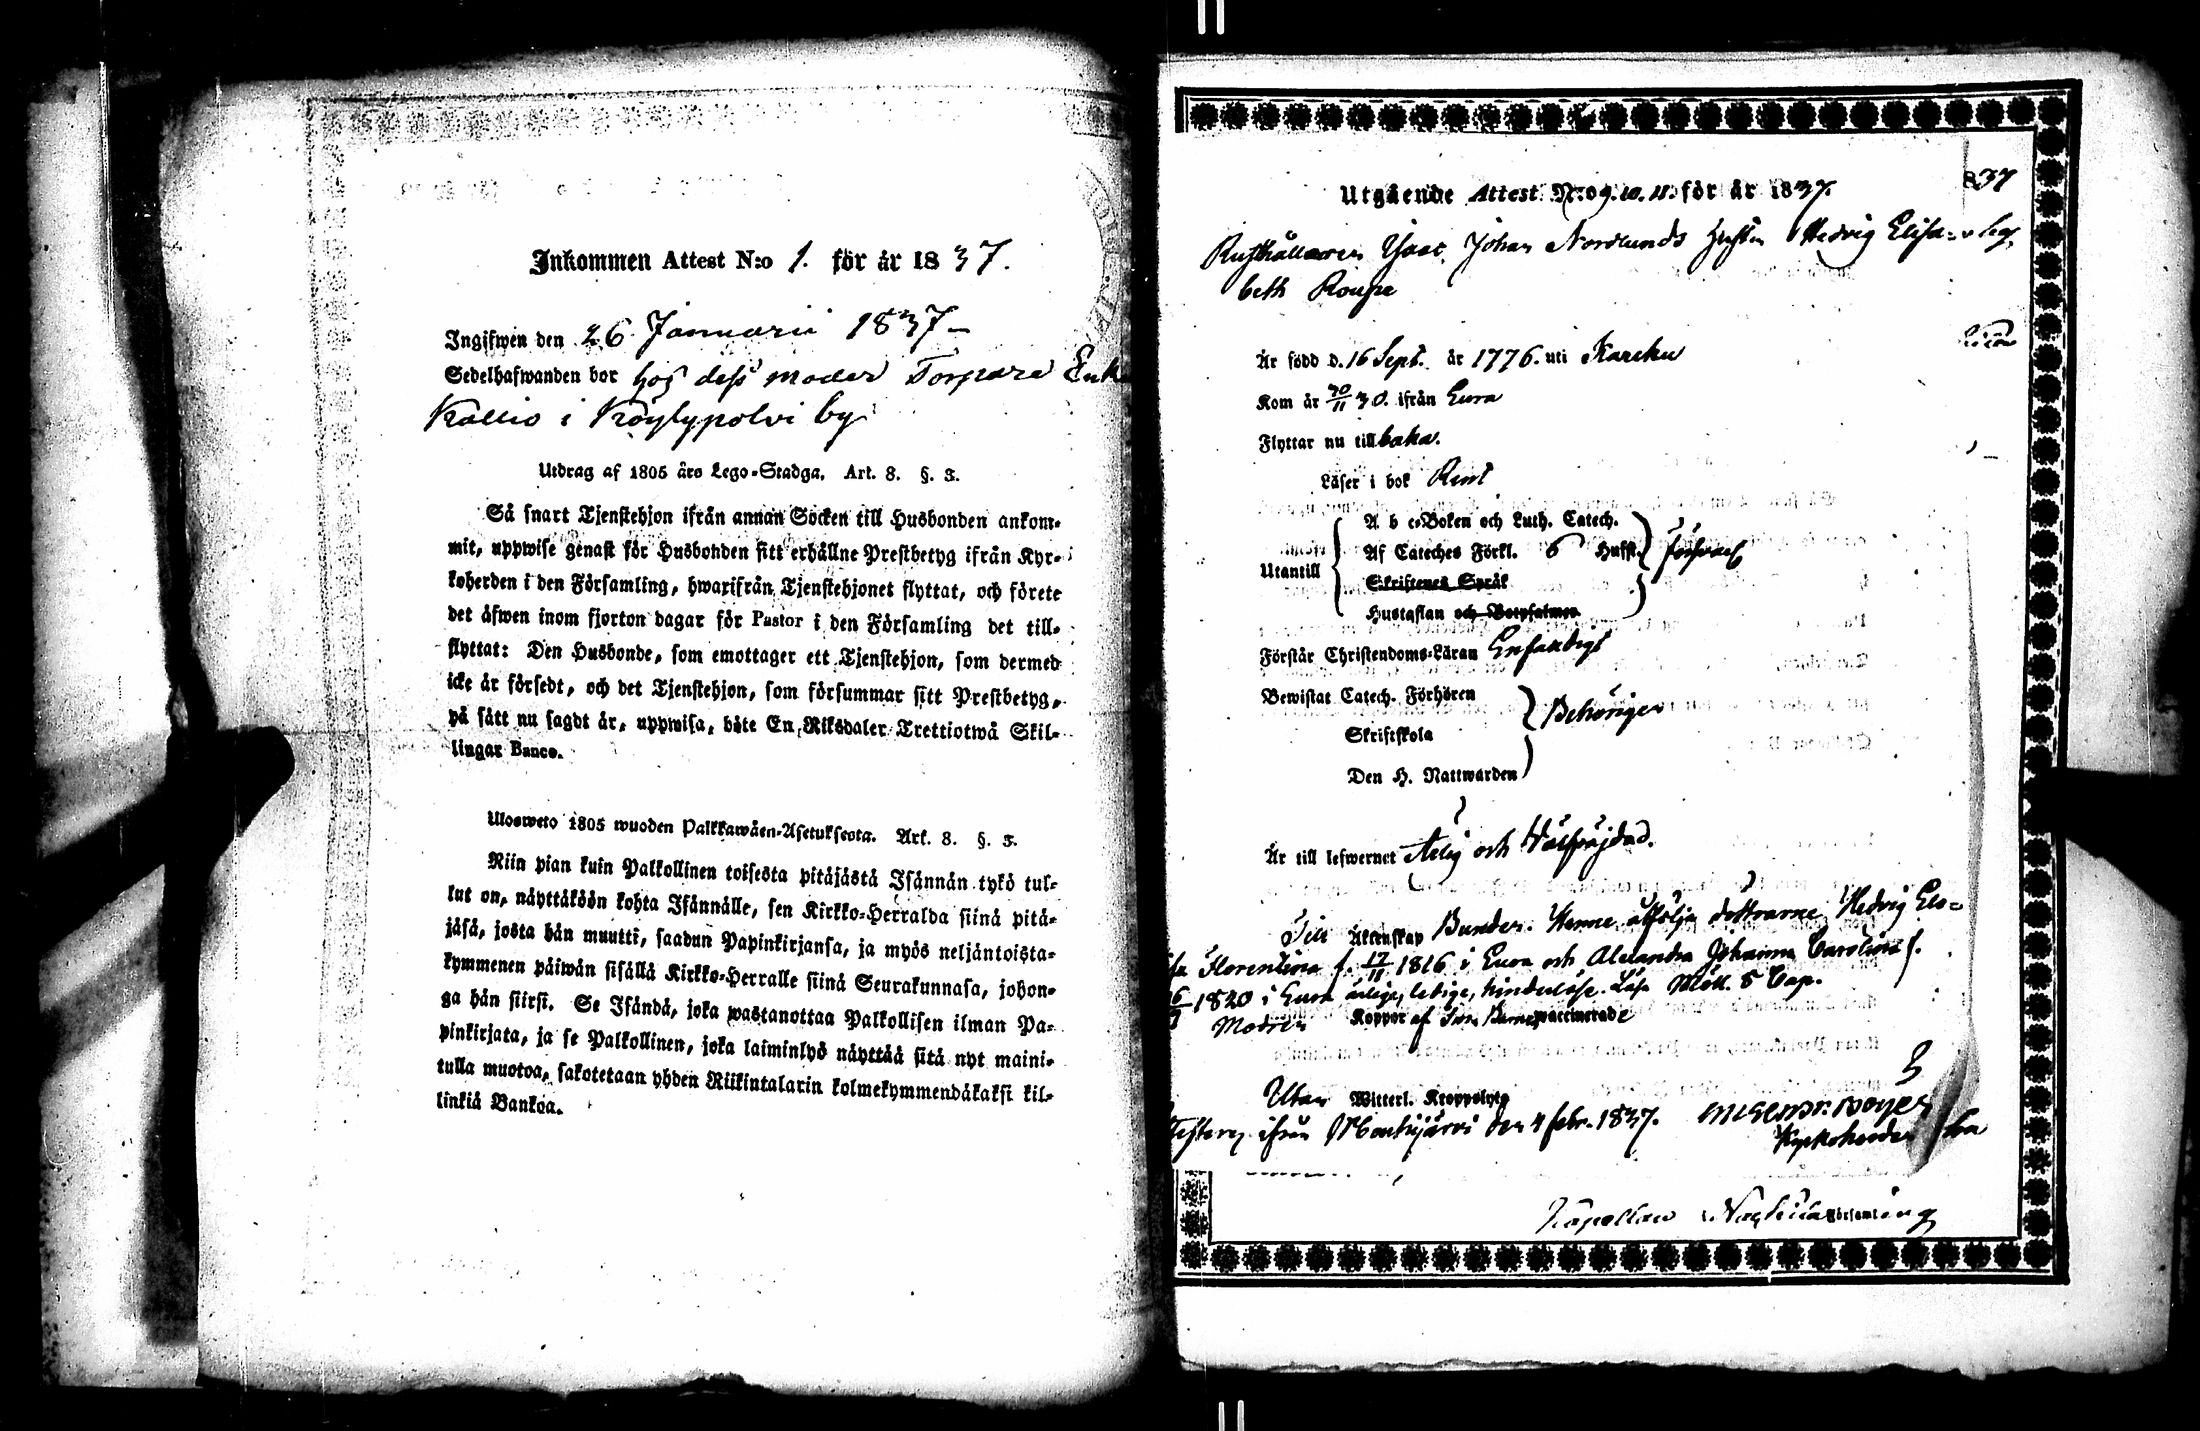 Inkommen Attest N:o 1. för år 1837.
Ingifwen den 26 Januarii 1837 –
Sedelhafwanden bor hos dess moder Torpare Enk
Kallio i Köylypolvi by
Utdrag af 1805 års Lego-Stadga. Art. 8. §. 3.
Så snart Tjenstehjon ifrån annan Socken till Husbonden ankom-
mit, uppwise genast för Husbonden sitt erhållne Prestbetyg ifrån Kyr-
koherden i den Församling, hwarifrån Tjenstehjonet flyttat, och förete
det äfwen inom fjorton dagar för Pastor i den Församling det till-
flyttat: Den Husbonde, som emottager ett Tjenstehjon, som dermed
icke är försedt, och det Tjenstehjon, som försummar sitt Prestbetyg,
på sätt nu sagdt är, uppwisa, böte En Riksdaler Trettiotwå Skil-
lingar Banco.
Ulosweto 1805 wuoden Palkkawäen-Asetuksesta. Art. 8. §. 3.
Niin pian kuin Palkollinen toisesta pitäjästä Isännän tykö tul-
lut on, näyttäköön kohta Isännälle, sen Kirkko-Herralda siinä pitä-
jäsä, josta hän muutti, saadun Papinkirjansa, ja myös neljäntoista-
kymmenen päiwän sisällä Kirkko-Herralle siinä Seurakunnasa, johon-
ga hän siirsi. Se Isändä, joka wastanottaa Palkollisen ilman Pa-
pinkirjata, ja se Palkollinen, joka laiminlyö näyttää sitä nyt maini-
tulla muotoa, sakotetaan yhden Riikintalarin kolmekymmendäkaksi kil-
linkiä Bankoa.
837
Utgående Attest N:o 9. 10. 11. för år 1837.
Rusthållaren Isac Johan Nordlunds Hustru Hedvig Elisa-
beth Roupe
Är född d. 16 Sept. år 1776. uti Karcku
Kom år 30/11 30. ifrån Eura
Flyttar nu tillbaka.
Läser i bok Rent
A b c-Boken och Luth. Catech.
Af Cateches Förkl. 6 Hufst. Försvarl
Utantill
Skriftenes Språk
Hustaflan och Botpsalmen
Förstår Christendoms-Läran Enfaldigt
Bewistat Catech. Förhören
Behörigen
Skriftskola
Den H. Nattwarden
Är till lefwernet Ärlig och Wälfräjdad.
Till Äktenskap Bunden. Henne åtfölja döttrarne Hedvig Elo-
isa Florentina f. 17/11 1816 i Eura och Alexandra Johanna Carolina f.
1820 i Eura ärlige, ledige, hinderlöse. Läse Möll. 5 Cap.
Modren Koppor af Barnen vaccinerade
Utan Witterl. Kroppslyte
ifrån Mouhijärvi den 4 febr. 1837.
Kyrkoherde